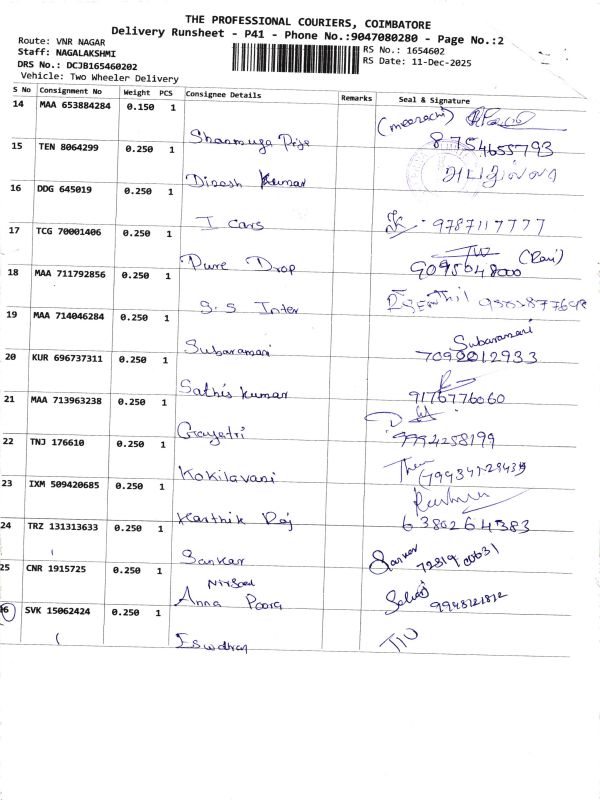 THE PROFESSIONAL COURIERS, COIMBATORE
Delivery Runsheet - P41 - Phone No.:9047080280 - Page No.:2
Route: VNR NAGAR
Staff: NAGALAKSHMI
DRS No.: DCJB165460202
Vehicle: Two Wheeler Delivery
RS No.: 1654602
RS Date: 11-Dec-2025
S No Consignment No Weight PCS Consignee Details Remarks Seal & Signature
14 MAA 653884284 0.150 1
Shanmuga Priya (meenachi)
8754655793
15 TEN 8064299 0.250 1
Dinesh Kumar
16 DDG 645019 0.250 1
I Cars 9787117777
17 TCG 70001406 0.250 1
Pure Drop (Ravi)
9095648000
18 MAA 711792856 0.250 1
S.S Inter Senthil
19 MAA 714046284 0.250 1
Subaramani Subaramani
7090012933
20 KUR 696737311 0.250 1
Sathis Kumar 9176776060
21 MAA 713963238 0.250 1
Gayatri 9994258199
22 TNJ 176610 0.250 1
Kokilavani
23 IXM 509420685 0.250 1
Karthik Raj 6380264383
24 TRZ 131313633 0.250 1
Sankar Sankar
25 CNR 1915725 0.250 1
Anna Poora
26 SVK 15062424 0.250 1
Eswaran